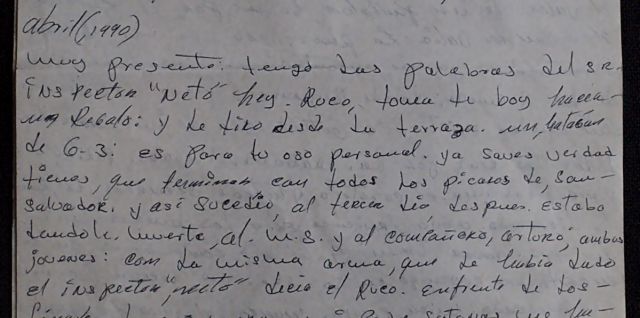 abril (1990)
muy presente: tengo Las palabras del sr.
inspector "Neto" hey. Ruco, toma te boy hacer
un Regalo: y Le tiro desde La terraza. un,
de G-3: es para tu oso personal. ya saves verdad
tienes, que terminar con todos Los picaros de, san-
salvador. y así sucedio, al tercer día, despues. estaba
dandole. muerte, al. M.S. y al compañero, arturo, ambos
jovenes: con La misma arma, que Le habia dado
el inspector, "neto" decia el Ruco. enfrente de Los-